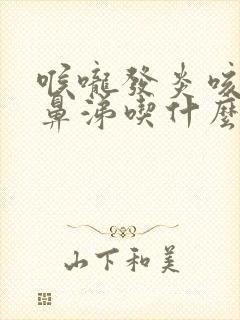 喉嚨發炎咳
鼻涕喫什麼
山下和美